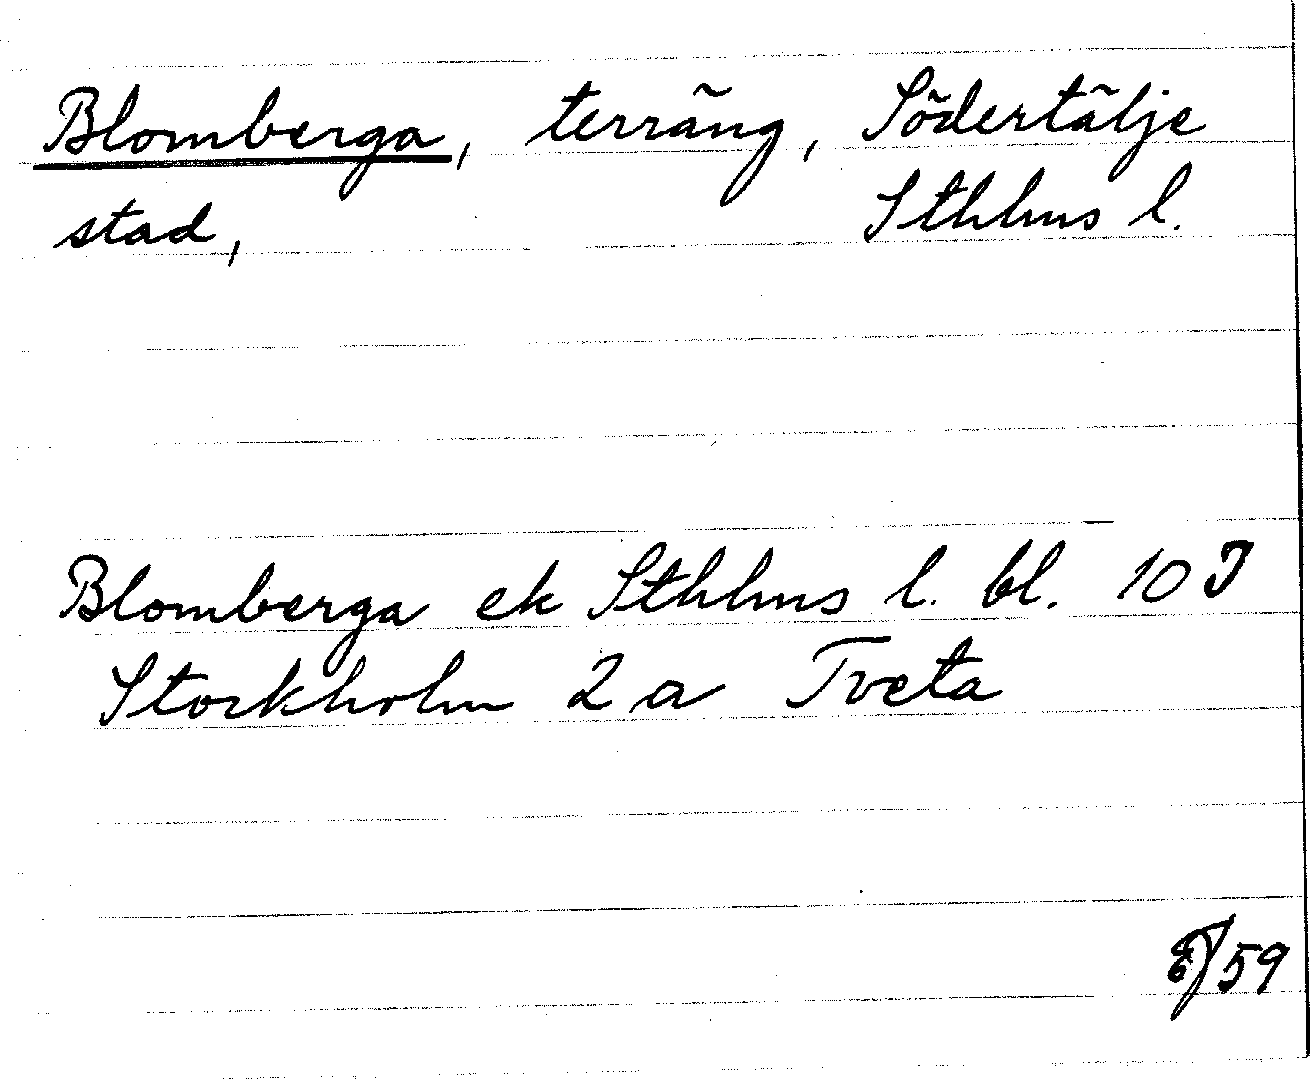 Blomberga, terräng, Södertälje
stad, Sthlms l.
Blomberga ek Sthlms l. bl. 10 I
Stockholm 2 a Tveta
/59